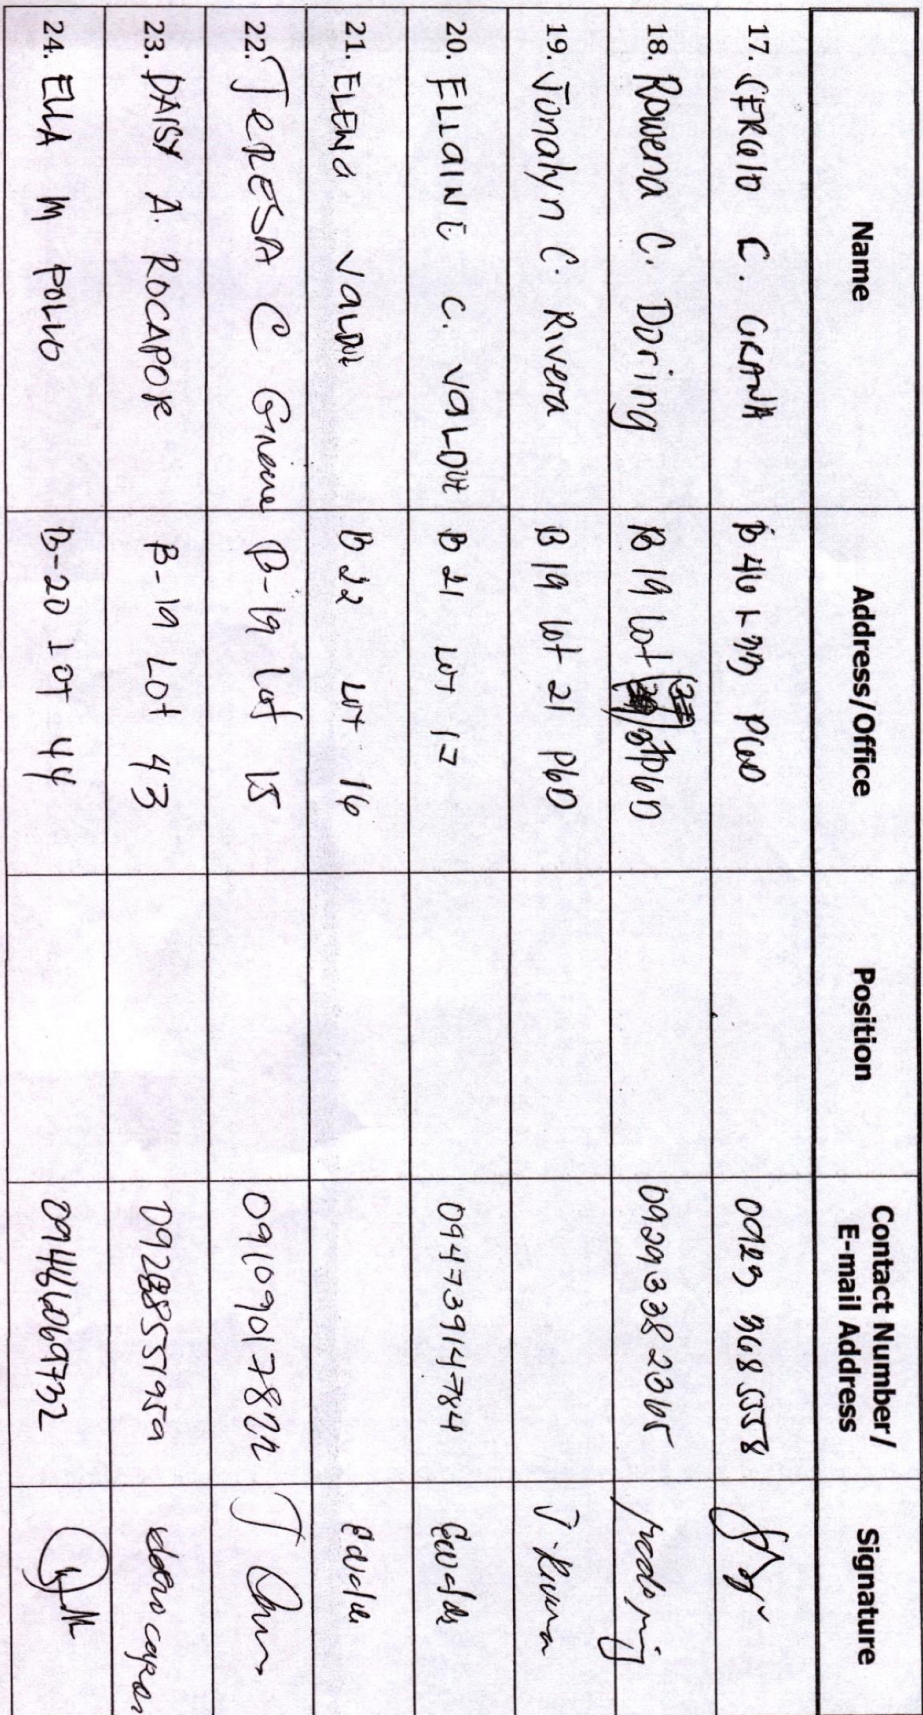 Name Address/Office Position Contact Number/ E-mail Address Signature
17. SERGIO C GRANA B 46 L 33 PGD 0923 368 5558
18. Rowena C. Doring B 19 lot PGD 0929 338 2365
19. Jonalyn C. Rivera B 19 lot 21 PGD J. Rivera
20. ELLAINE C. VALDEZ B 21 LOT 17 09473914784
21. ELENA VALDEZ B 22 LOT 16
22. TERESA C B-19 Lot 15 09109017822
23. DAISY A. ROCAPOR B-19 LOT 43
24. ELLA M POLLO B-20 LOT 44 09486069732